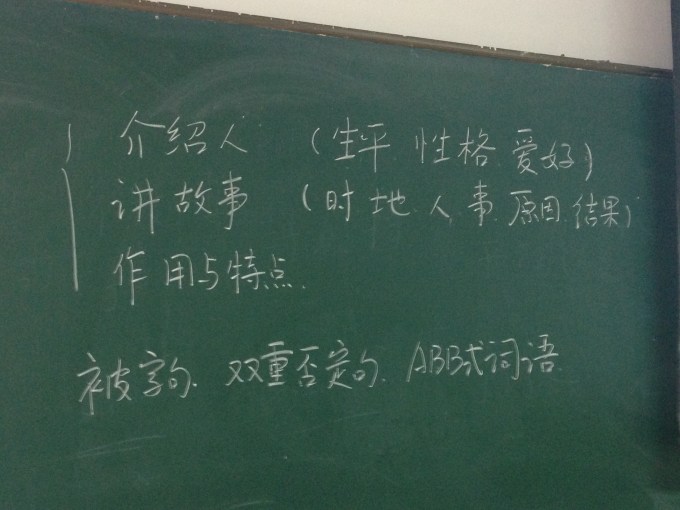 介绍人 (生平.性格.爱好)
讲故事 (时.地.人.事.原因.结果)
作用与特点.
被字句.双重否定句.ABB式词语.